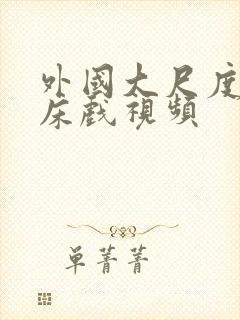 外國大尺度
床戲視頻
单菁菁